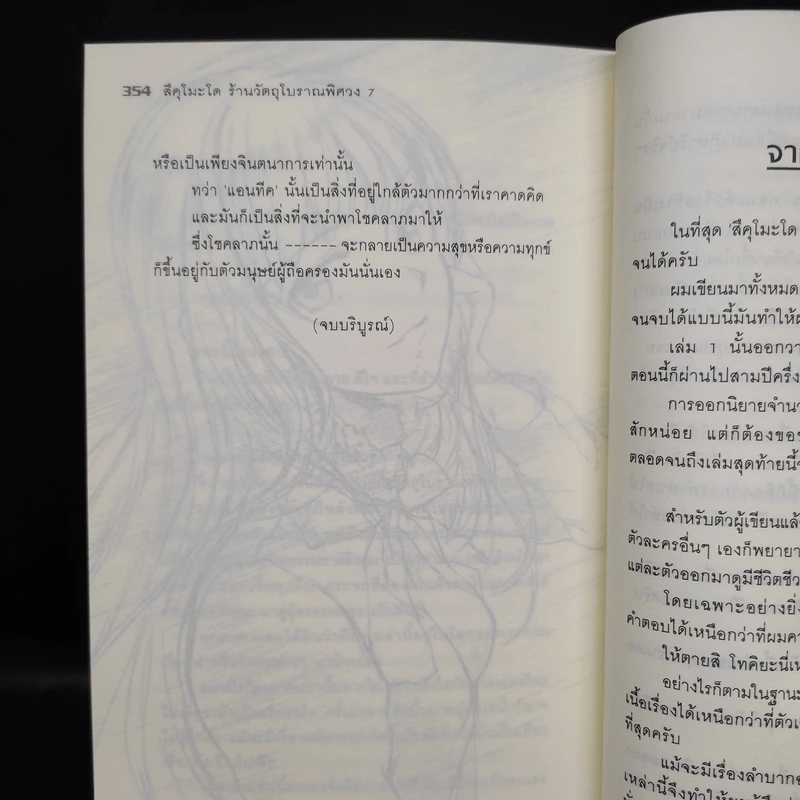 354 สึคุโมะโด ร้านวัตถุโบราณพิศวง 7
หรือเป็นเพียงจินตนาการเท่านั้น
ทว่า 'แอนทีค' นั้นเป็นสิ่งที่อยู่ใกล้ตัวมากกว่าที่เราคาดคิด
และมันก็เป็นสิ่งที่จะนำพาโชคลาภมาให้
ซึ่งโชคลาภนั้น ------ จะกลายเป็นความสุขหรือความทุกข์
ก็ขึ้นอยู่กับตัวมนุษย์ผู้ถือครองมันนั่นเอง
(จบบริบูรณ์)
ในที่สุด 'สึคุโมะโด
จนได้ครับ
ผมเขียนมาทั้งหมด
จนจบได้แบบนี้มันทำให้
เล่ม 1 นั้นออกวา
ตอนนี้ก็ผ่านไปสามปีครึ่ง
การออกนิยายจำนว
สักหน่อย แต่ก็ต้องขอ
ตลอดจนถึงเล่มสุดท้ายนี้
สำหรับตัวผู้เขียนแล้
ตัวละครอื่นๆ เองก็พยายา
แต่ละตัวออกมาดูมีชีวิตชีว
โดยเฉพาะอย่างยิ่ง
คำตอบได้เหนือกว่าที่ผมคา
ให้ตายสิ โทคิยะนี่เห
อย่างไรก็ตามในฐานะ
เนื้อเรื่องได้เหนือกว่าที่ตัวเ
ที่สุดครับ
แม้จะมีเรื่องลำบาก
เหล่านี้จึงทำให้